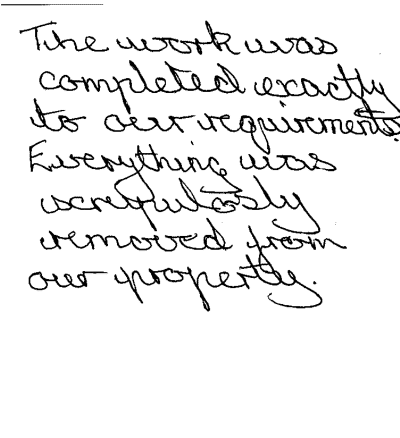 The work was
completed exactly
to our requirements.
Everything was
screpulosly
removed from
our property.